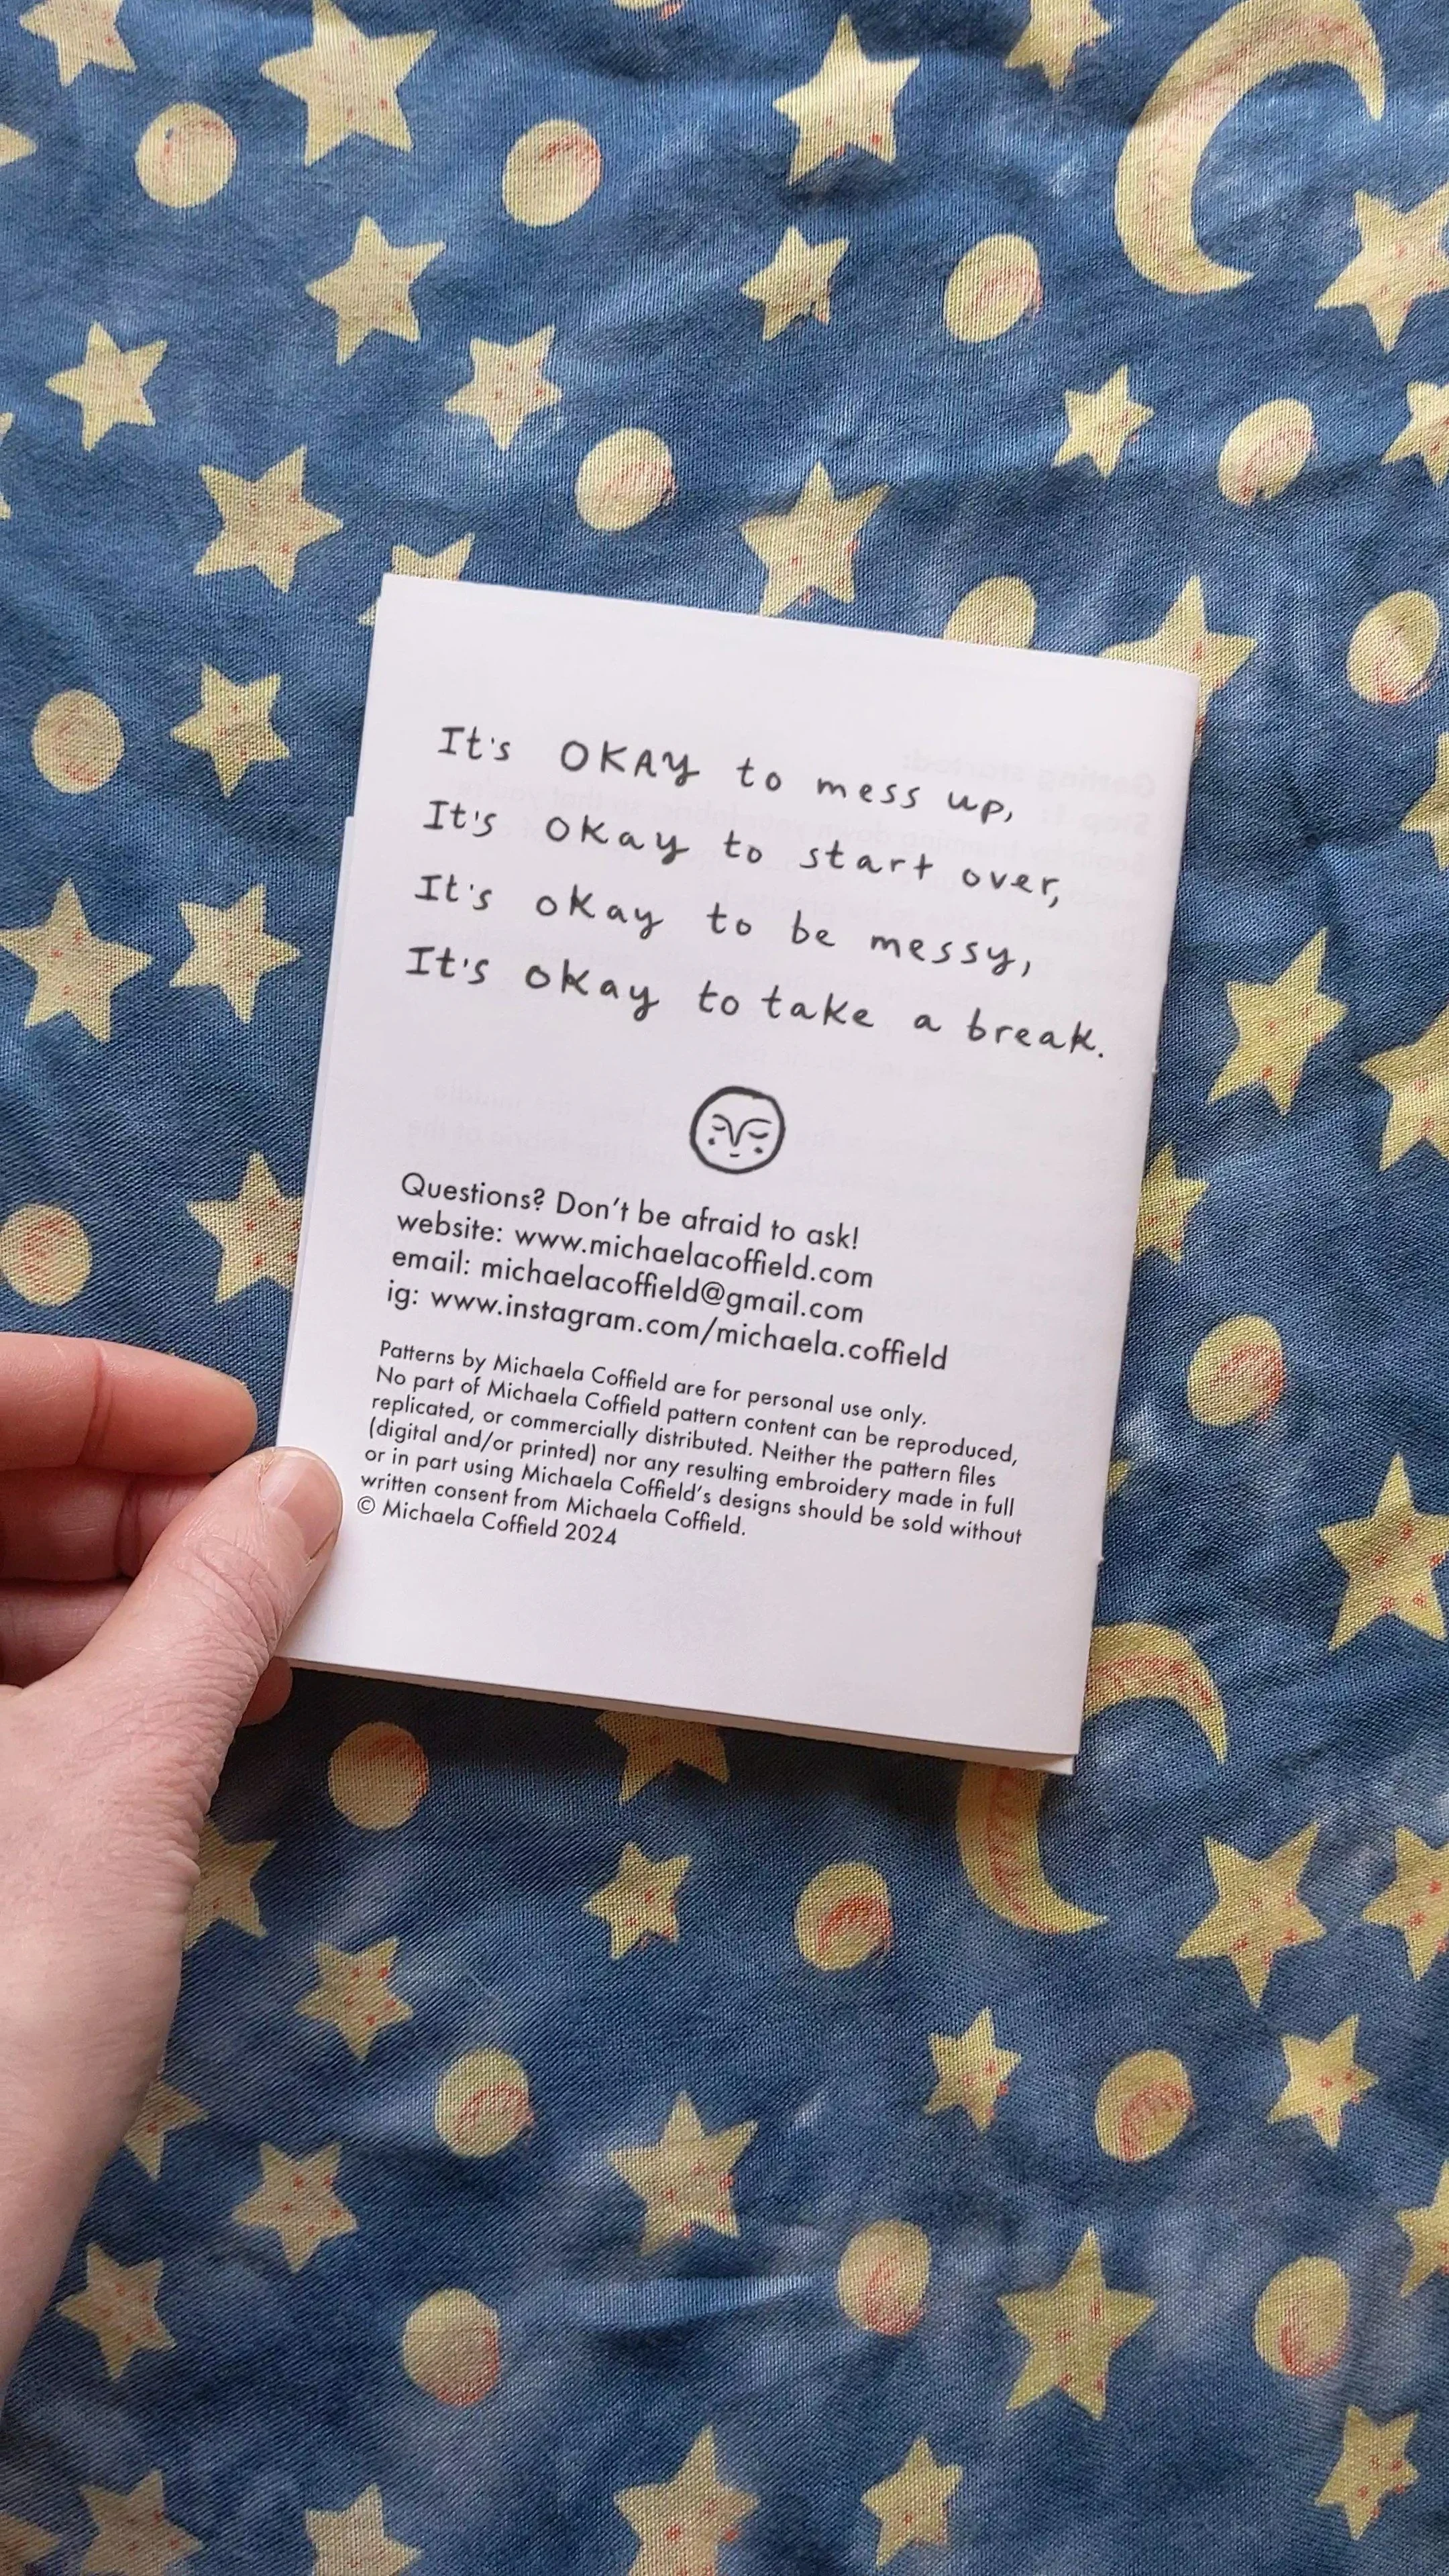 It's OKAY to mess up,
It's okay to start over,
It's okay to be messy,
It's okay to take a break.
Questions? Don't be afraid to ask!
website: www.michaelacoffield.com
email: michaelacoffield@gmail.com
ig: www.instagram.com/michaela.coffield
Patterns by Michaela Coffield are for personal use only.
No part of Michaela Coffield pattern content can be reproduced,
replicated, or commercially distributed. Neither the pattern files
(digital and/or printed) nor any resulting embroidery made in full
or in part using Michaela Coffield's designs should be sold without
written consent from Michaela Coffield.
© Michaela Coffield 2024